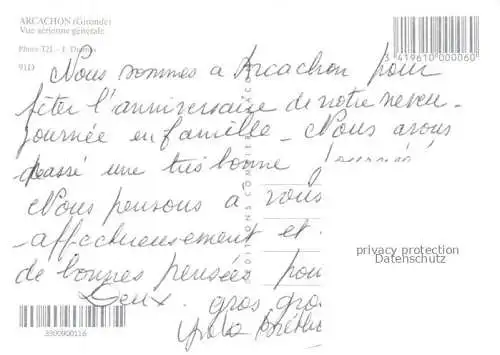 ARCACHON (Gironde)
Vue aérienne générale
91D
3 419610 000060
Nous sommes a Arcachon pour
fêter l'anniversaire de notre neveu -
journée en famille - Nous avons
passé une très bonne journée
Nous pensons à vous
affectueusement et
de bonnes pensées pour
Deux. gros gro
privacy protection
Datenschutz
3300900116